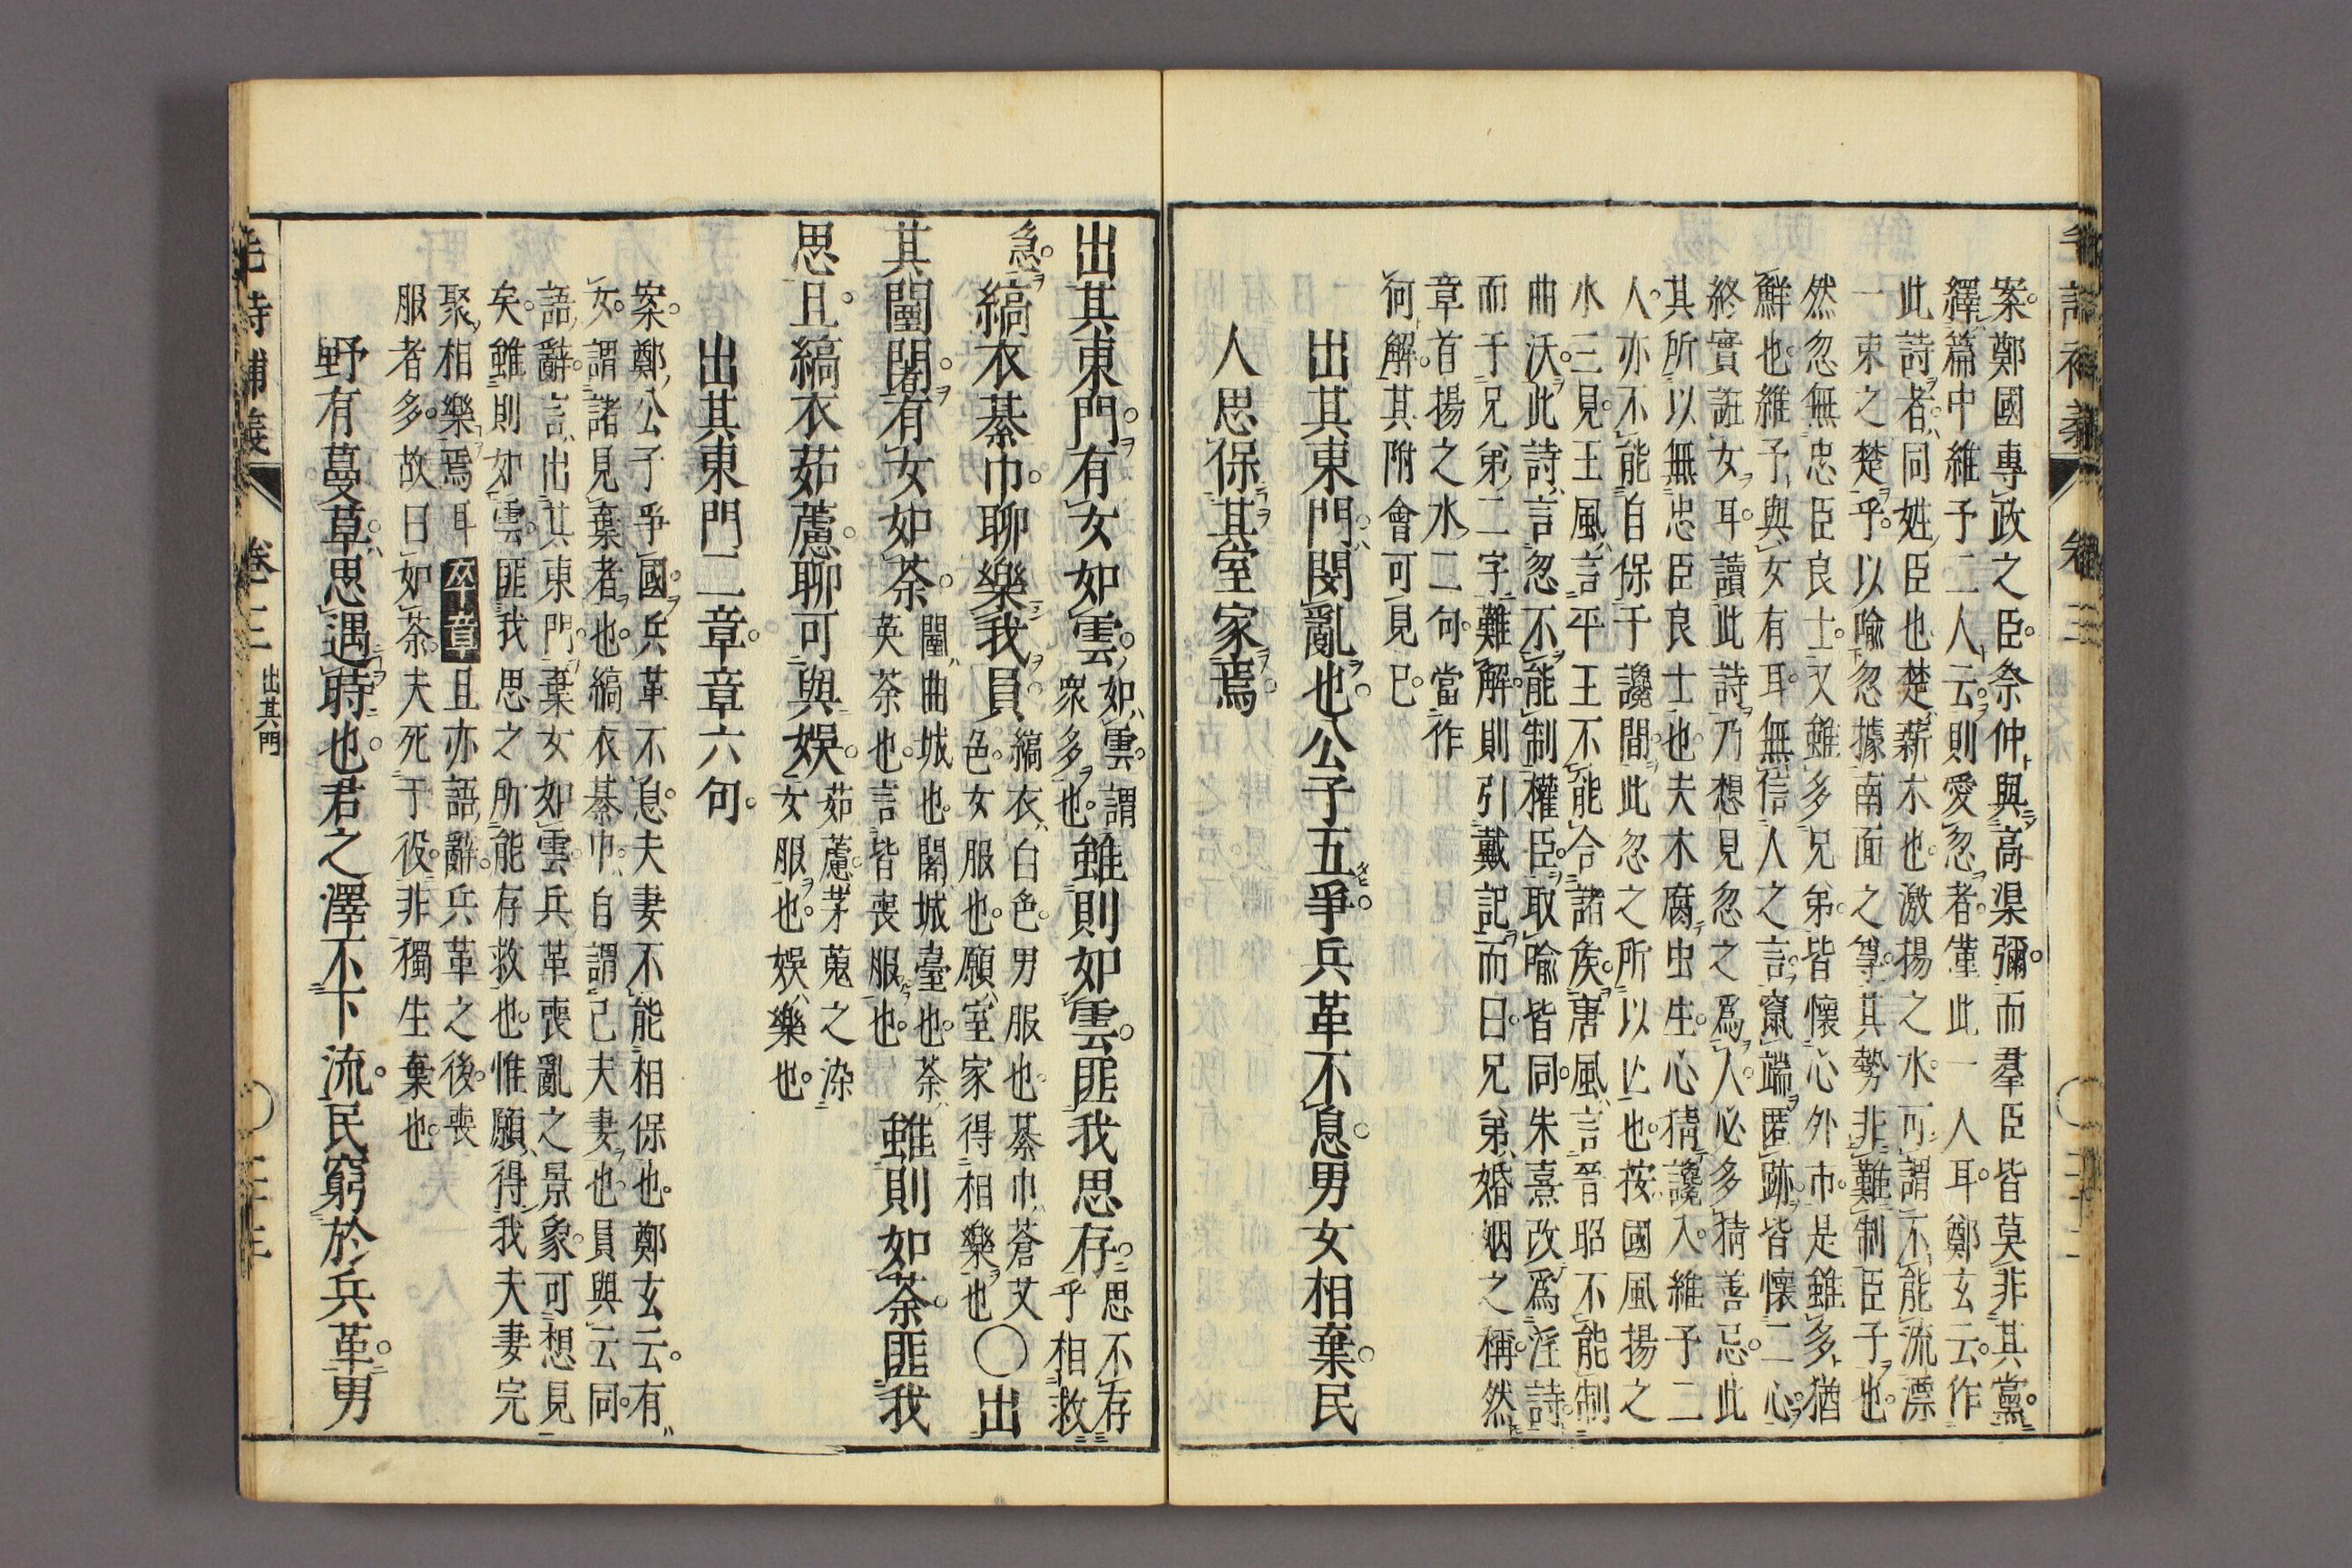 案。鄭國專政之臣。祭仲與高渠彌。而羣臣皆莫非其黨。
繹篇中維予二人云。則愛忽者。僅此一人耳。鄭玄云。作
此詩者。同姓臣也。楚薪木也。激揚之水。可謂不能流漂
一束之楚乎。以喩忽據南面之尊。其勢非難制臣子也。
然忽無忠臣良士。又雖多兄弟。皆懷心外巿。是雖多猶
鮮也。維予與女有耳。無信人之言。竄端匿跡。皆懷二心。
終實誑女耳。讀此詩。乃想見忽之爲人。必多猜善忌。此
其所以無忠臣良士也。夫木腐虫生。心猜讒入。維予二
人。亦不能自保于讒間。此忽之所以亡也。按國風揚之
水三見。王風言平王不能合諸矦。唐風言晉昭不能制
曲沃。此詩言忽不能制權臣。取喩皆同。朱熹改爲淫詩。
而于兄弟二字難解。則引戴記而曰。兄弟婚姻之稱。然
章首揚之水二句。當作
何解。其附會可見已。
出其東門。閔亂也。公子五爭。兵革不息。男女相棄。民
人思保其室家焉。
出其東門。有女如雲。如雲。謂衆多也。雖則如雲。匪我思存。思不存乎相救
急。縞衣綦巾。聊樂我員。縞衣。白色。男服也。綦巾。蒼艾色。女服也。願室家得相樂也。〇出
其闉闍。有女如荼。闉曲城也。闍城臺也。荼英荼也。言皆喪服也。雖則如荼。匪我
思且。縞衣茹藘。聊可與娛。茹藘。茅蒐之染女服也。娛樂也。
出其東門二章。章六句。
案。鄭公子爭國。兵革不息。夫妻不能相保也。鄭玄云。有
女。謂諸見棄者也。縞衣綦巾。自謂己夫妻也。員與云同。
語辭。言出其東門。棄女如雲。兵革喪亂之景象。可想見
矣。雖則如雲。匪我思之所能存救也。惟願得我夫妻完
聚。相樂焉耳。卒章且亦語辭。兵革之後。喪
服者多。故曰如荼。夫死于役。非獨生棄也。
野有蔓草。思遇時也。君之澤不下流。民窮於兵革。男
毛詩補義
卷三
出其門